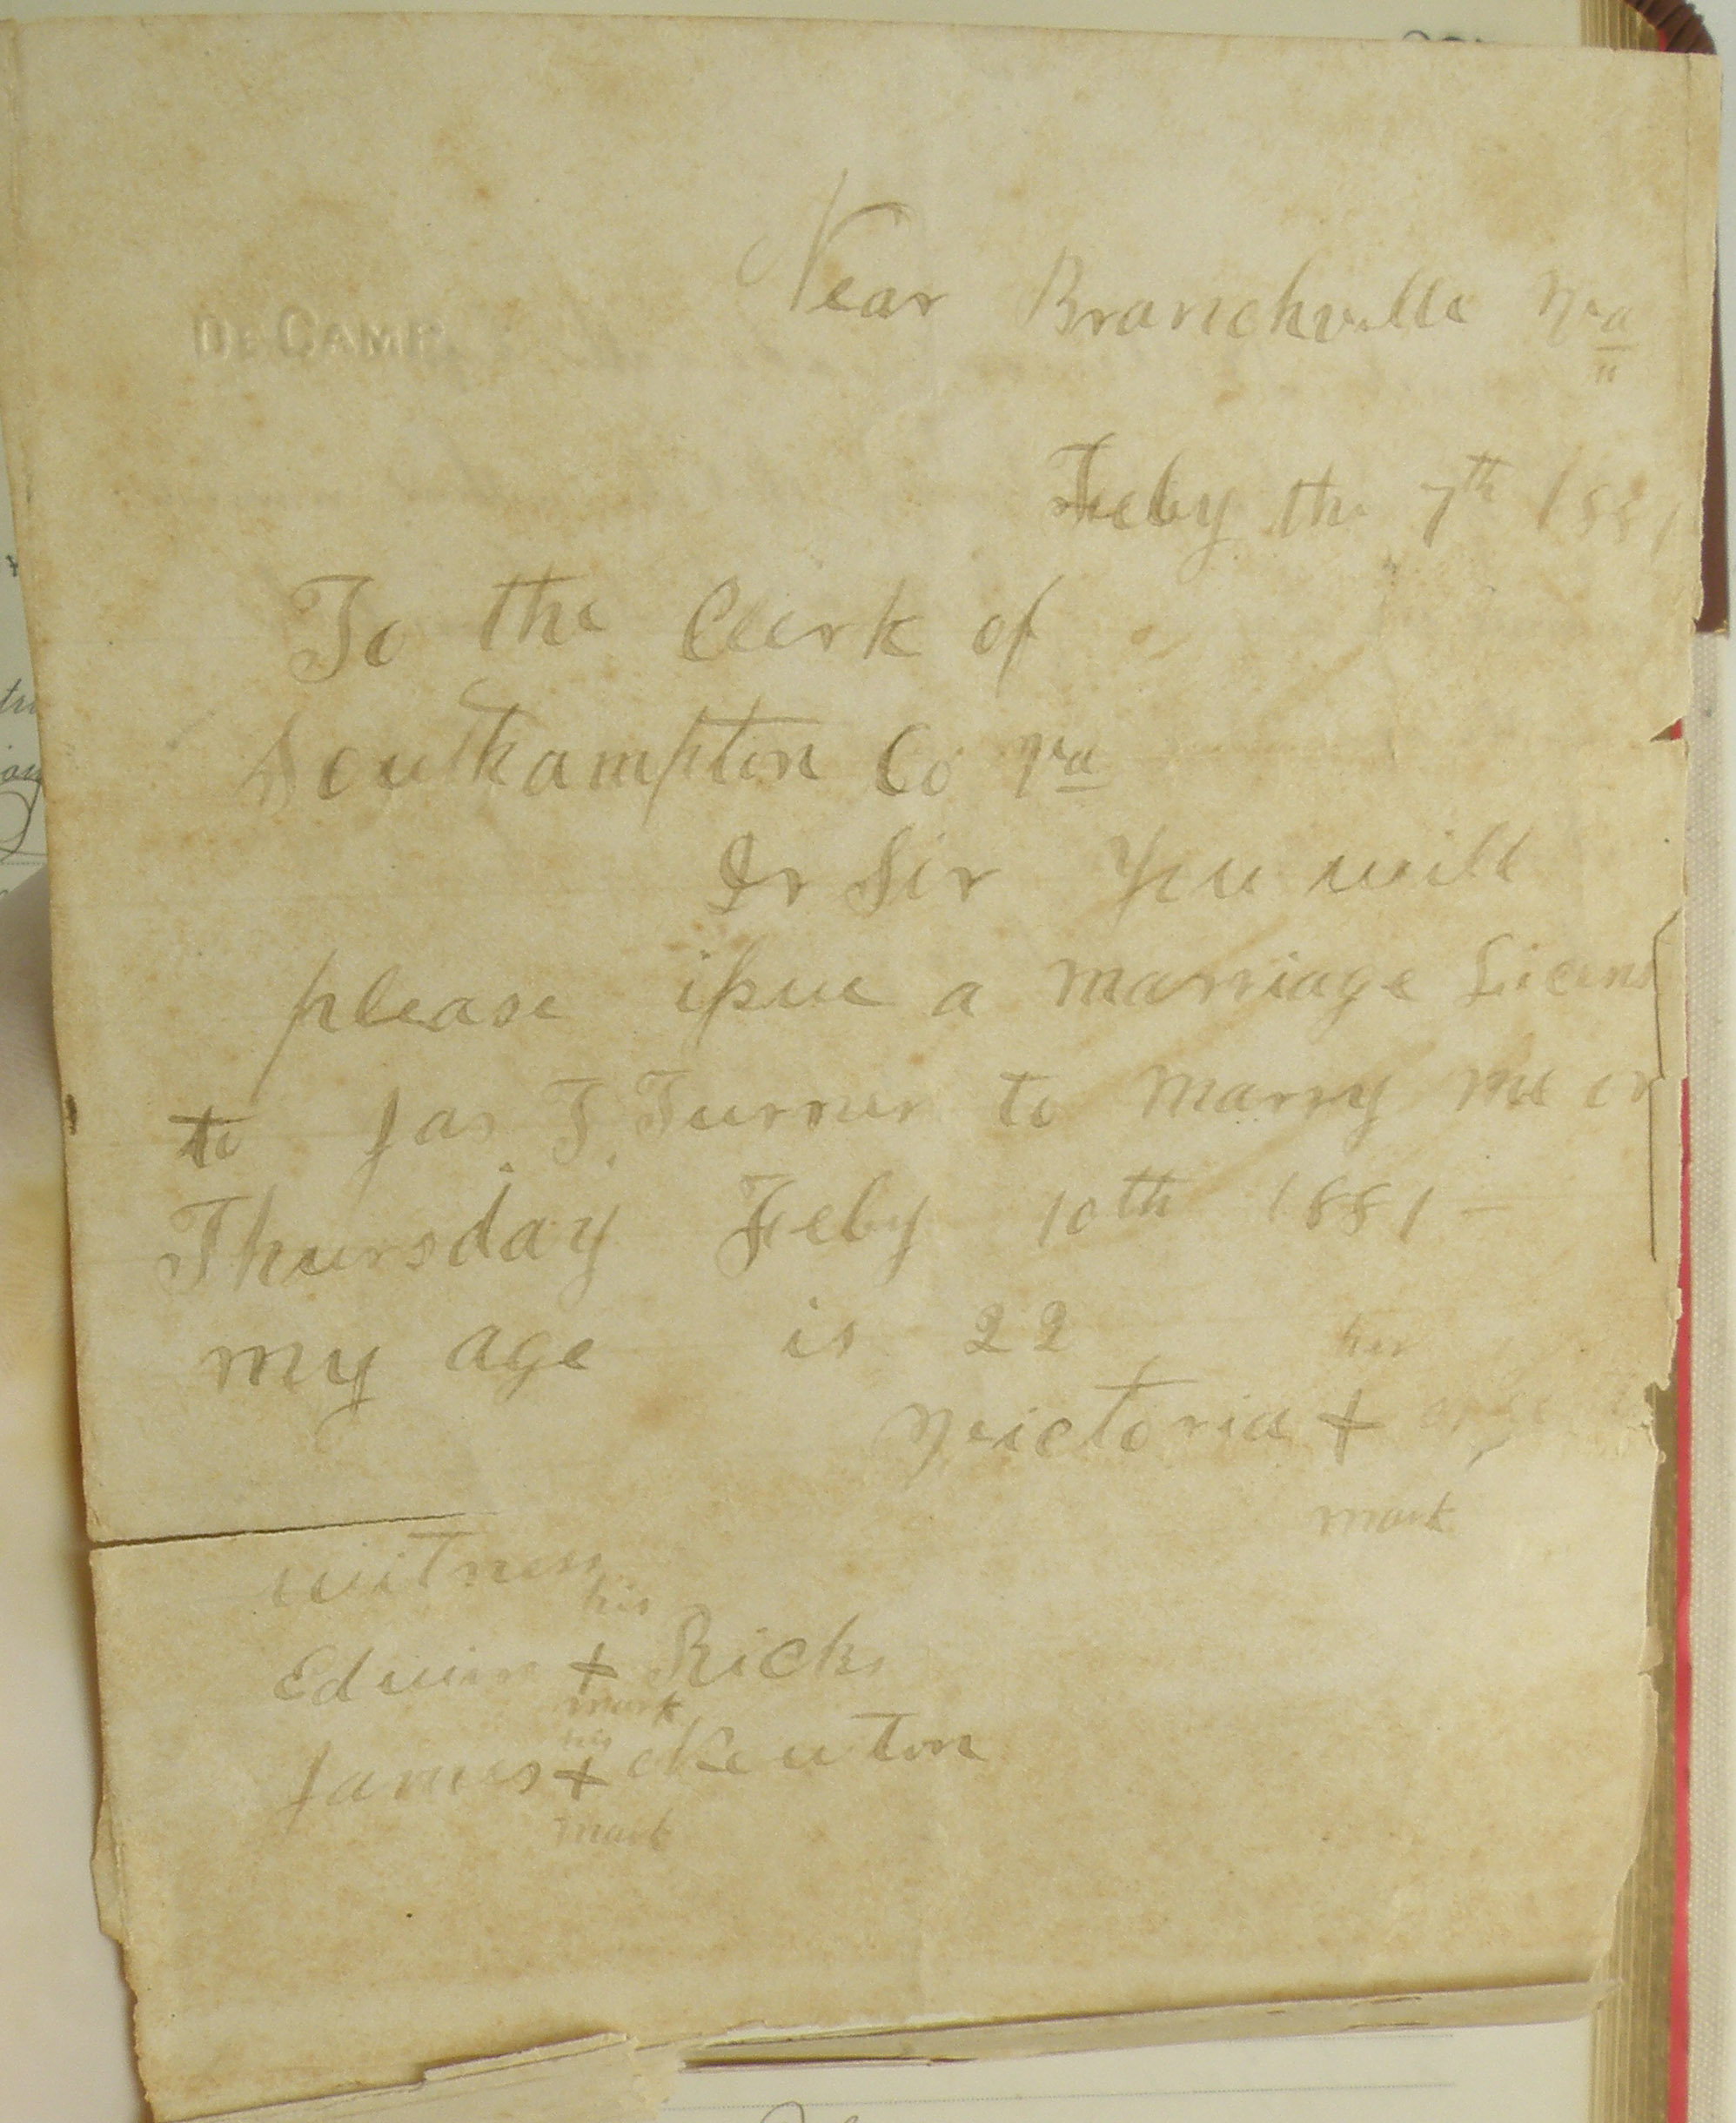 Near Branchville Va
DE CAMP
Feby the 7th 1881
To the Clerk of
Southampton Co Va
Dr Sir You will
please issue a marriage Licens
to Jas T. Turner to marry me on
Thursday Feby 10th 1881 –
my age is 22
her
Victoria +
mark
witness
his
Edwin + Ricks
mark
his
James + Newton
mark